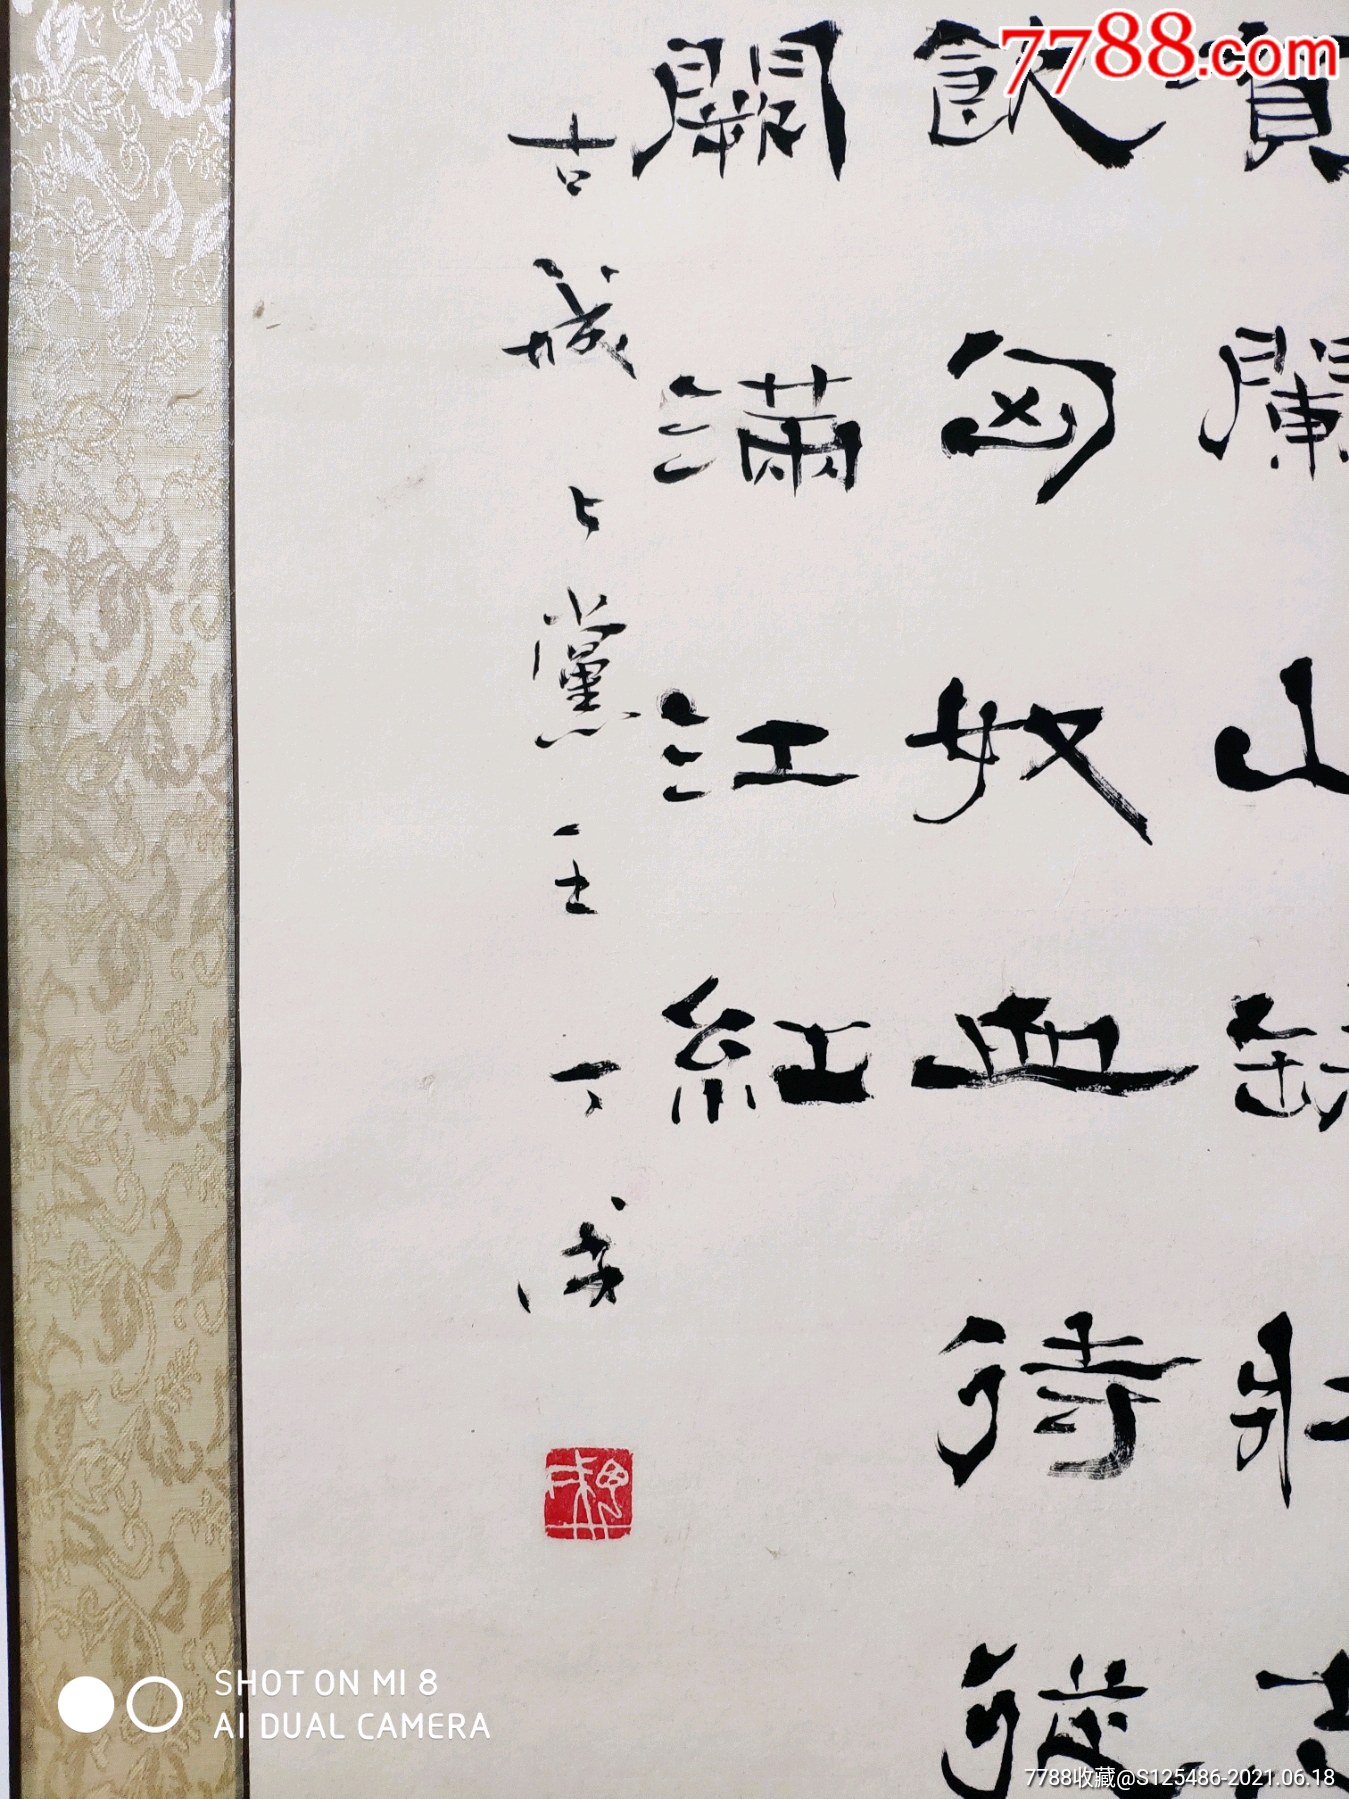 7788.com
賀蘭山缺壯志
飲匈奴血待從
闕滿江紅
古城上黨王丁
SHOT ON MI 8
AI DUAL CAMERA
7788收藏@S125486-2021.06.18